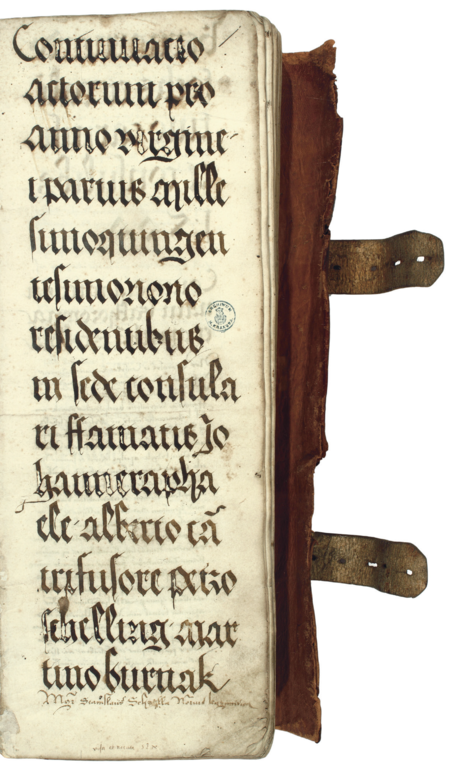 Continuacio
actorum pro
anno virgine
i partus mille
simoquingen
tesimonono
residentibus
in sede consula
ri ffamatis Jo
hanne rapha
ele alberto cā
trifusore petro
schelling mar
tino burnak